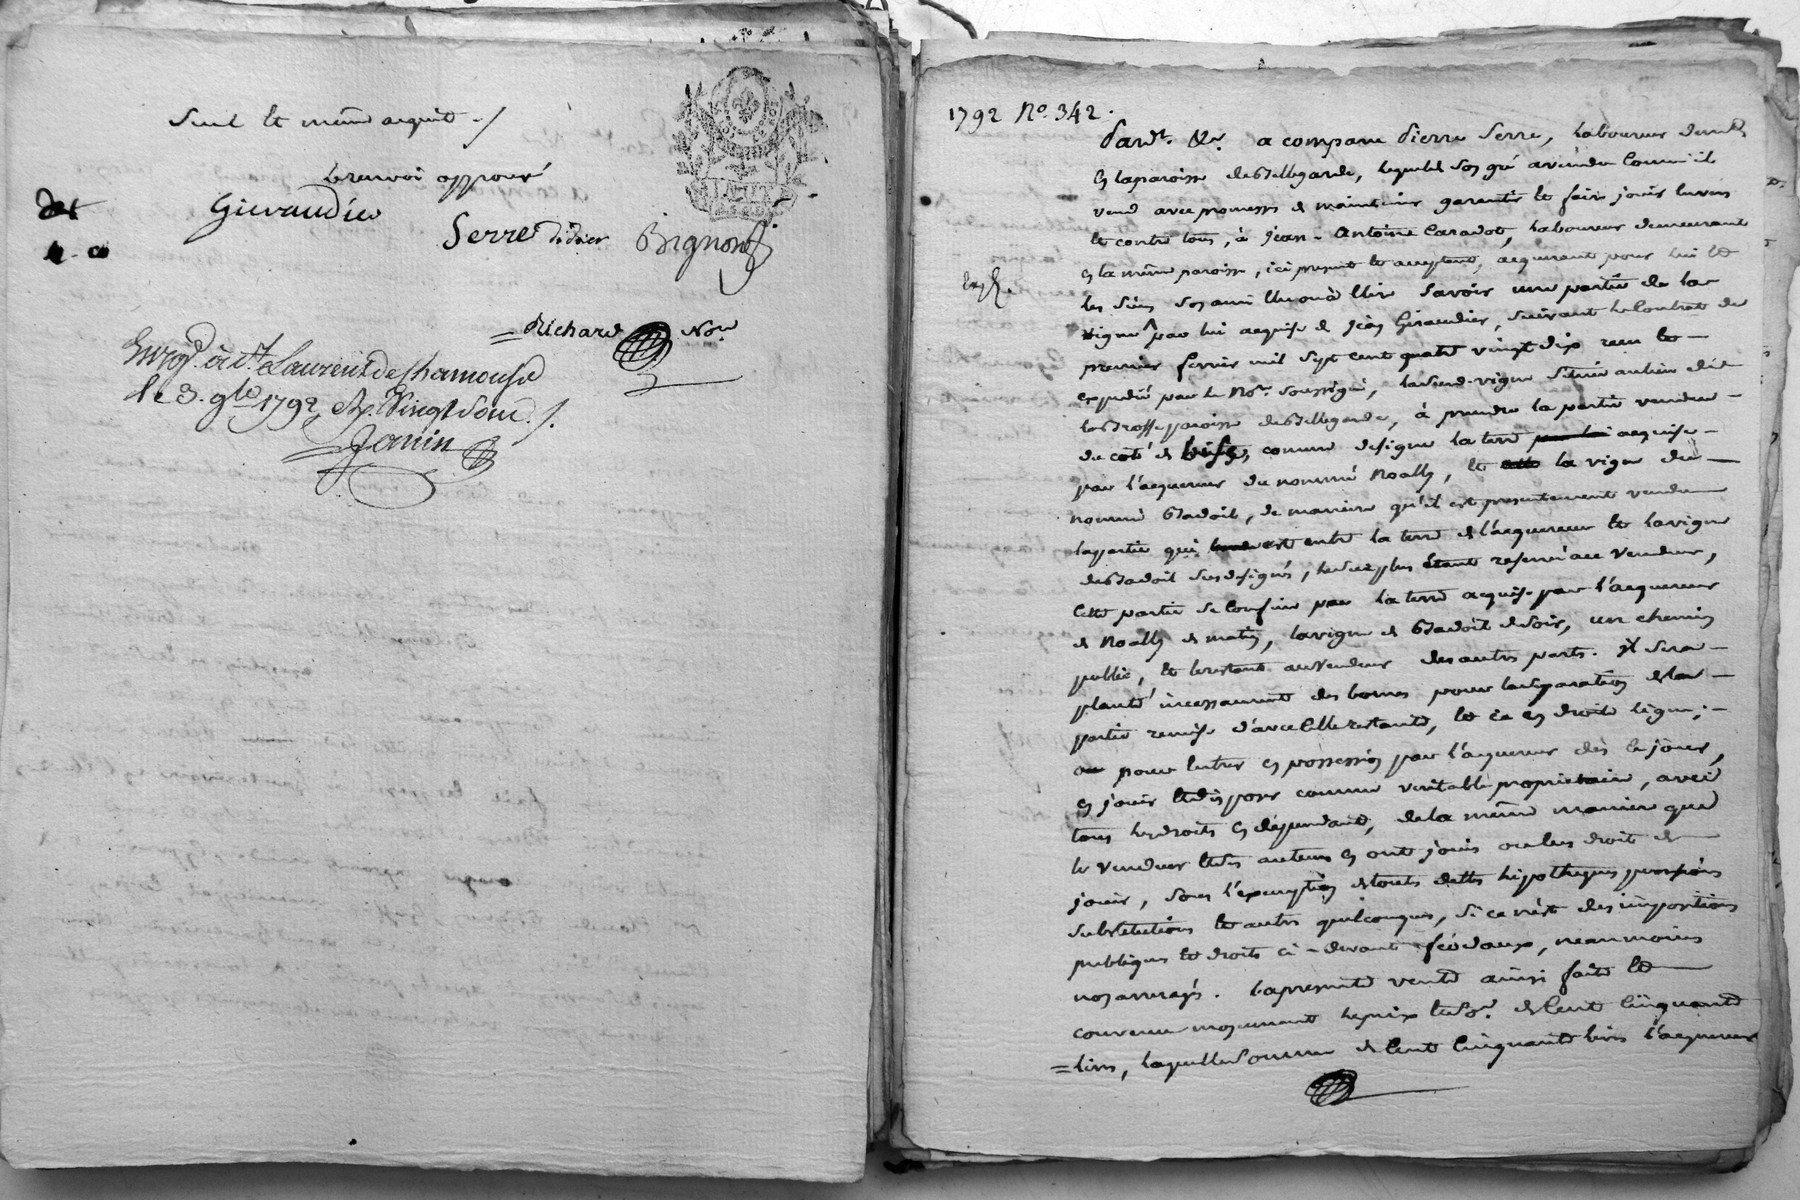 Seul et même acquit ./
le renvoi approuvé
Giraudier
Serre didier Bignon
Richard Nore
Enregé. à St. Laurent de Chamousse
le 3. 9bre 1792, Rx. Vingt sous ./.
Janin
1792 No. 342.
Pardt. &r. a comparu Pierre Serre, laboureur demt
en la paroisse de Bellegarde, lequel de son gré a vendu comme il
vend avec promesses de maintenir garentir et faire jouir envers
et contre tous, à Jean-Antoine Caradot, laboureur demeurant
en la même paroisse, ici présent et acceptant, acquerant pour lui et
les siens son ami élu ou à élire savoir une partie de la
vigne par lui acquise de Jean Giraudier, suivant le contrat du
premier fevrier mil sept cent quatre vingt dix reçu et
expedié par le Nore. soussigné, situé au lieu dit
paroisse de Bellegarde, à prendre la partie vendue
du coté de bise, comme designe la terre par lui acquise
par l'acquereur du nommé Noally, et la vigne du
nommé Badoil, de maniere qu'il est presentement vendu
la partie qui est entre la terre de l'acquereur et la vigne
de Badoil sus designés, le surplus étant reservé au vendeur,
cette partie se confine par la terre acquise par l'acquereur
de Noally de matin, la vigne de Badoil de soir, un chemin
public, et le restant au vendeur des autres parts. Il sera
planté incessament des bornes pour la separation de la
partie remise d'avec celle restante, et ce en droite ligne;
pour entrer en possession par l'acquereur dès ce jour,
en jouir et disposer comme veritable proprietaire, avec
tous les droits en dépendant, de la même maniere que
le vendeur et ses auteurs en ont joui ou eu droit de
jouir, sous l'exemption de toutes dettes hipotheques pensions
substitutions et autres quelconques, si ce n'est des impositions
publiques et droits ci-devant féodaux, neanmoins
non arreragés. La presente vente ainsi faite et
convenue moyenant le prix de cent cinquante
livres, laquelle somme de cent cinquante livres l'acquereur